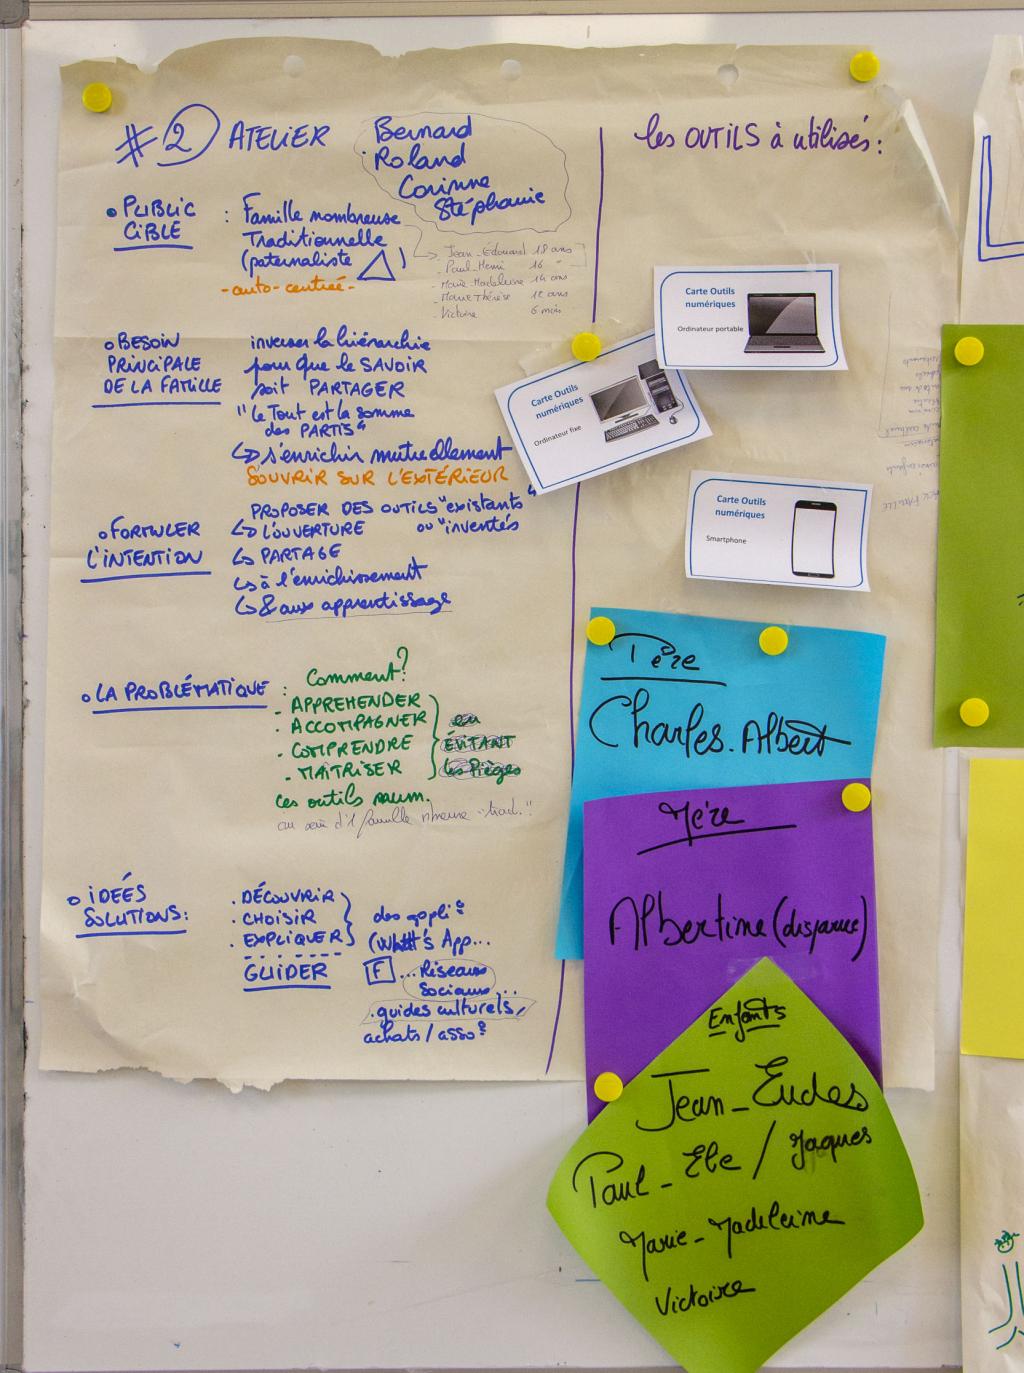 #2 ATELIER
Bernard
Roland
Corinne
Stéphanie
les OUTILS à utilisés:
• PUBLIC
CIBLE
: Famille nombreuse
Traditionnelle
(paternaliste )
- auto-centrée -
Jean-Édouard 18 ans
- Paul-Henri 16 "
- Marie-Madeleine 14 ans
- Marie Thérèse 12 ans
- Victoire 6 mois
o BESOIN
PRINCIPALE
DE LA FAMILLE
inverser la hiérarchie
pour que le SAVOIR
soit PARTAGER
"le Tout est la somme
des PARTIS"
↳ s'enrichir mutuellement
S'OUVRIR SUR L'EXTÉRIEUR
o FORMULER
L'INTENTION
PROPOSER DES OUTILS "existants"
↳ L'OUVERTURE ou "inventés
↳ PARTAGE
↳ à l'enrichissement
↳ & aux apprentissage
o LA PROBLÉMATIQUE
: Comment?
- APPREHENDER
- ACCOMPAGNER
- COMPRENDRE
- MAÎTRISER
en
ÉVITANT
les Pièges
ces outils num.
au sein d'1 famille nbreuse -trad."
o IDEÉS
SOLUTIONS:
. DÉCOUVRIR
. CHOISIR
. EXPLIQUER
GUIDER
des appli?
(What's App...
F ... Réseaux
Sociaux...
. guides culturels,
achats/asso?
Carte Outils
numériques
Ordinateur portable
Carte Outils
numériques
Ordinateur fixe
Carte Outils
numériques
Smartphone
Père
Charles-Albert
Mère
Albertine (disparue)
Enfants
Jean-Eudes
Paul-Ele / Jaques
Marie-Madeleine
Victoire